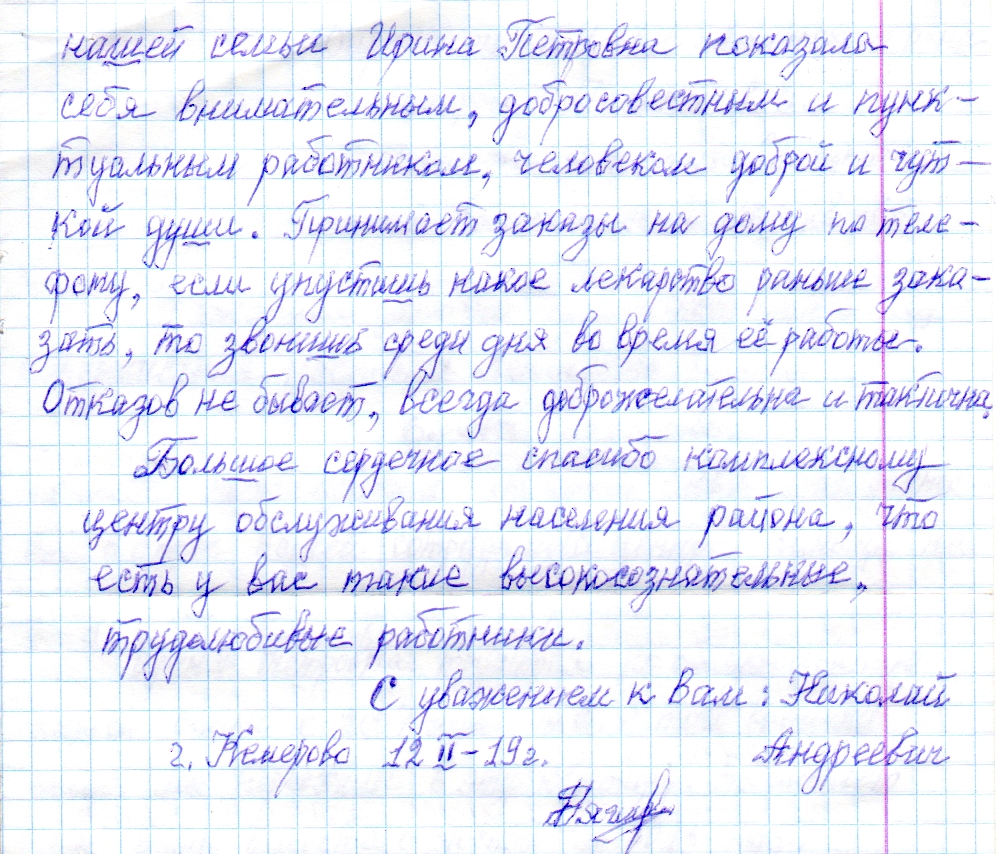 нашей семьи Ирина Петровна показала
себя внимательным, добросовестным и пунк-
туальным работником, человеком доброй и чут-
кой души. Принимает заказы на дому по теле-
фону, если упустишь какое лекарство раньше зака-
зать, то звонишь среди дня во время её работы.
Отказов не бывает, всегда доброжелательна и тактична.
Большое сердечное спасибо комплексному
центру обслуживания населения района, что
есть у вас такие высокосознательные,
трудолюбивые работники.
С уважением к Вам: Николай
г. Кемерово 12 II-19г. Андреевич